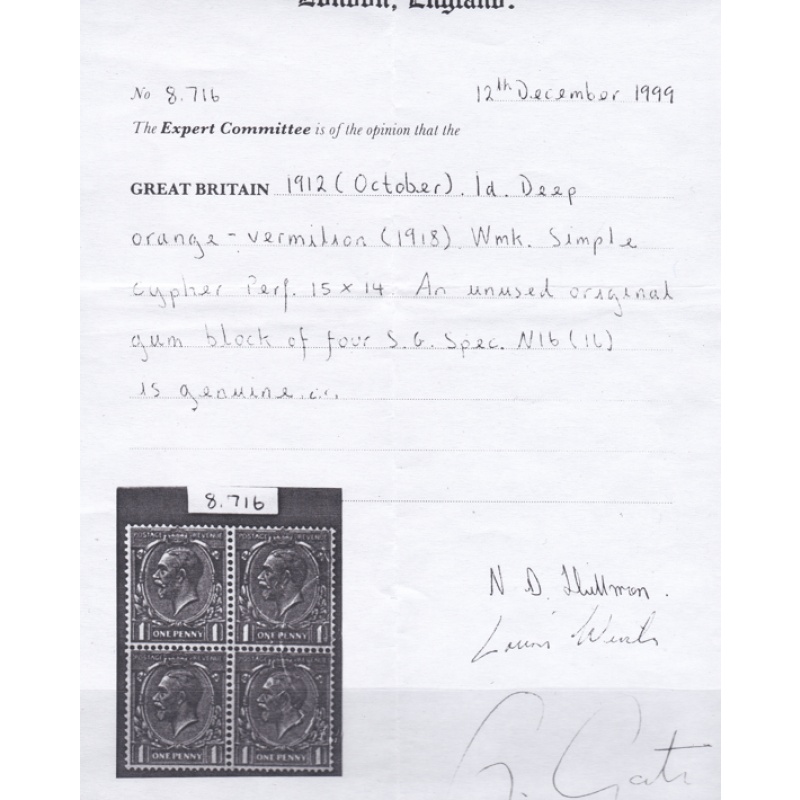 London, England.
No 8.716 12th December 1999
The Expert Committee is of the opinion that the
GREAT BRITAIN 1912 (October). 1d. Deep
orange-vermilion (1918) Wmk. Simple
cypher Perf. 15 x 14. An unused original
gum block of four S.G. Spec. N16 (16)
is genuine.
8.716
POSTAGE REVENUE POSTAGE REVENUE
1 ONE PENNY 1 1 ONE PENNY 1
N D
POSTAGE REVENUE POSTAGE REVENUE
1 ONE PENNY 1 1 ONE PENNY 1